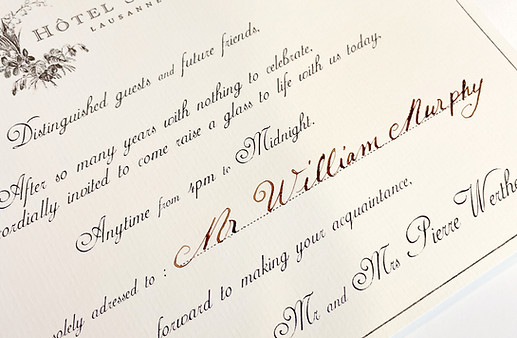 HÔTEL
LAUSANNE
Distinguished guests and future friends,
After so many years with nothing to celebrate,
cordially invited to come raise a glass to life with us today.
Anytime from 4pm to Midnight.
solely adressed to : Mr William Murphy
forward to making your acquaintance,
Mr and Mrs Pierre Werthe